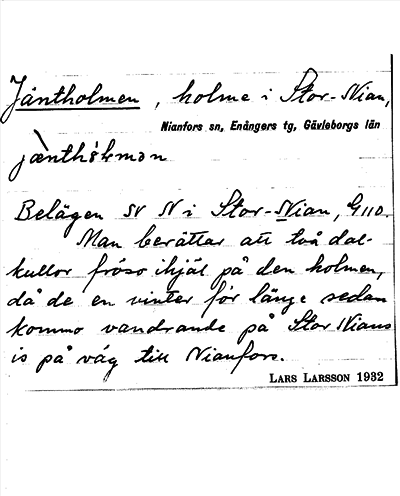 Jäntholmen, holme i Stor-Nian,
Nianfors sn, Enångers tg, Gävleborgs län
Belägen SV N i Stor-Nian, G110.
Man berättar att två dal-
kullor fröso ihjäl på den holmen,
då de en vinter för länge sedan
kommo vandrande på Stor Nians
is på väg till Nianfors.
LARS LARSSON 1932